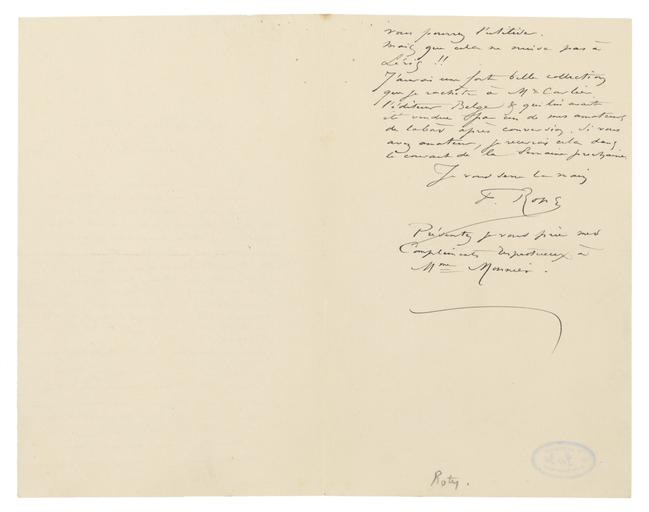 vous pourrez l'utiliser.
mais que cela ne nuise pas à
J'aurai une fort belle collection
que je rachète à Mr Carlier
l'éditeur Belge & qui lui avait
été vendue par un de mes amateurs
de là bas après conversion. Si vous
avez amateur, je recevrai cela dans
le courant de la Semaine prochaine.
Je vous serre la main
F. Rops
Présentez je vous prie mes
Compliments respectueux à
Mme Monnier.